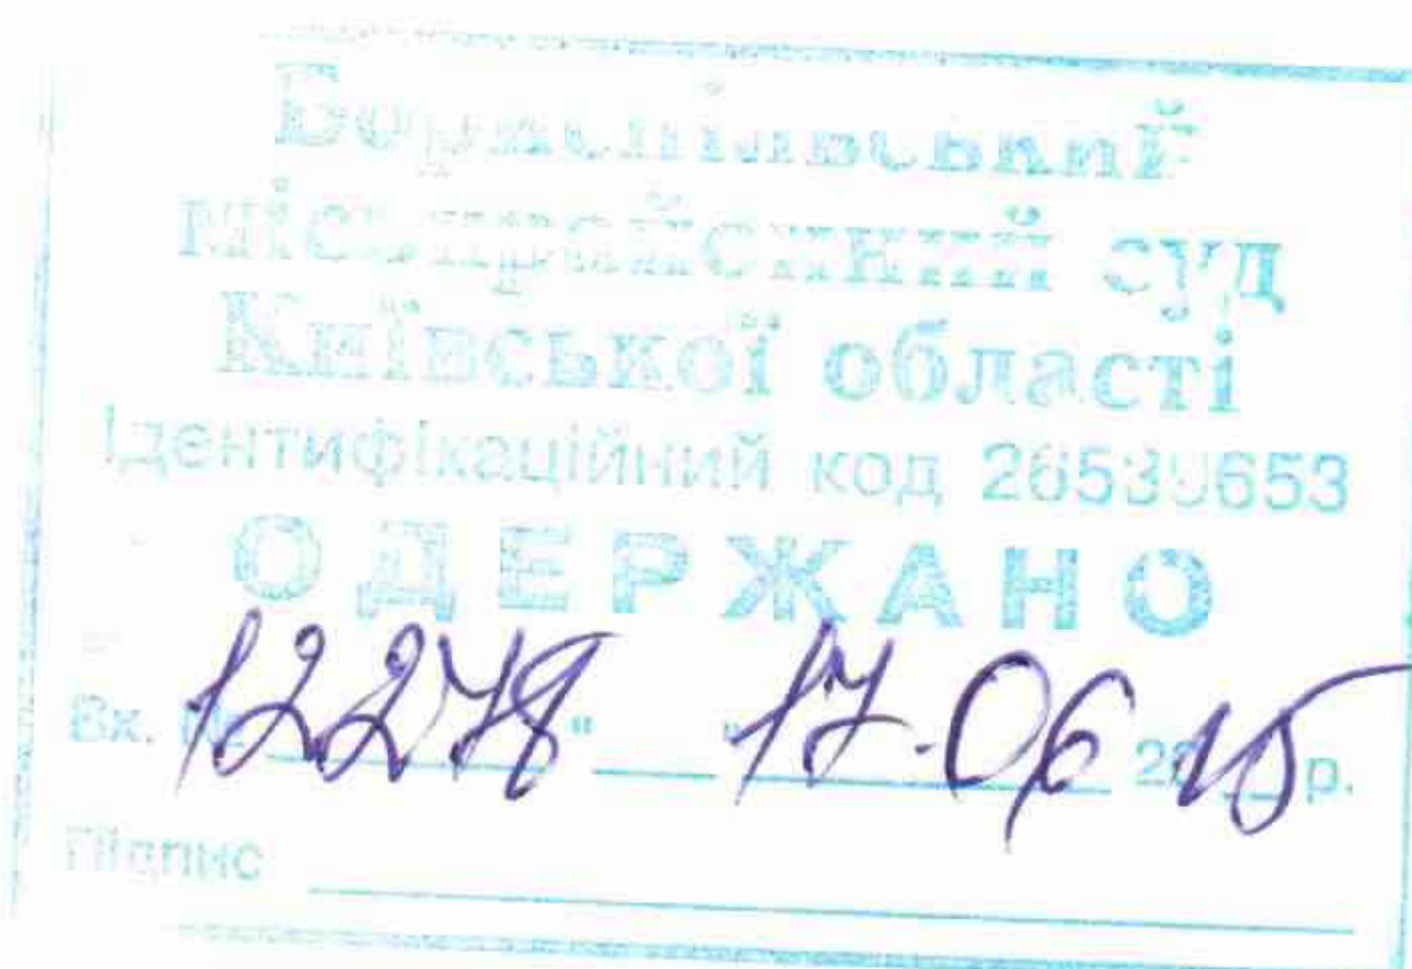 Бориспільський
міськрайонний суд
Київської області
Ідентифікаційний код 26539653
ОДЕРЖАНО
Вх. № 12278 " " 17.06 2015 р.
Підпис